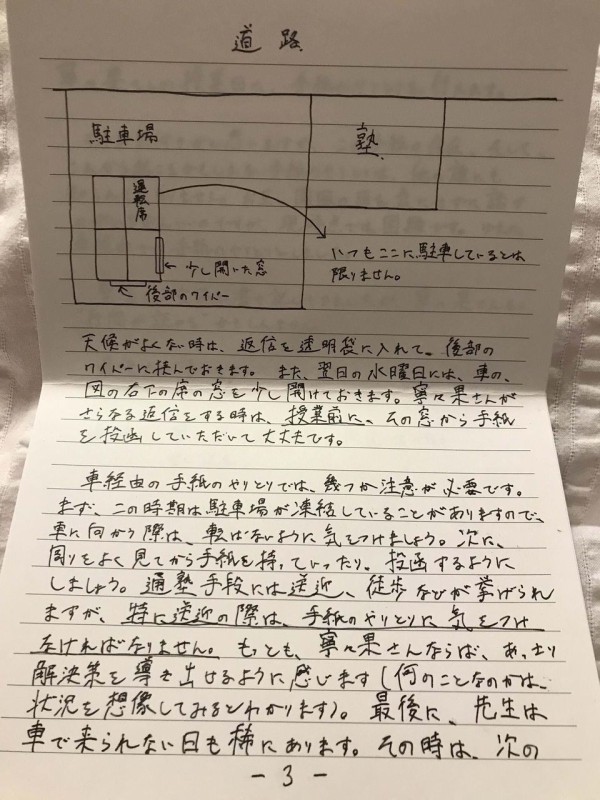 道路
駐車場
塾
運転席
いつもここに駐車しているとは
限りません。
← 少し開いた窓
← 後部のワイパー
天候がよくない時は、返信を透明袋に入れて、後部の
ワイパーに挟んでおきます。また、翌日の水曜日には、車の、
図の右下の席の窓を少し開けておきます。寧々果さんが
さらなる返信をする時は、授業前に、その窓から手紙
を投函していただいて大丈夫です。
車経由の手紙のやりとりでは、幾つか注意が必要です。
まず、この時期は駐車場が凍結していることがありますので、
車に向かう際は、転ばないように気をつけましょう。次に、
周りをよく見てから手紙を持っていったり、投函するように
しましょう。通塾手段には送迎、徒歩などが挙げられ
ますが、特に送迎の際は、手紙のやりとりに気をつけ
なければなりません。もっとも、寧々果さんならば、あっさり
解決策を導き出せるように感じます(何のことなのかは、
状況を想像してみるとわかります)。最後に、先生は
車で来られない日も稀にあります。その時は、次の
- 3 -